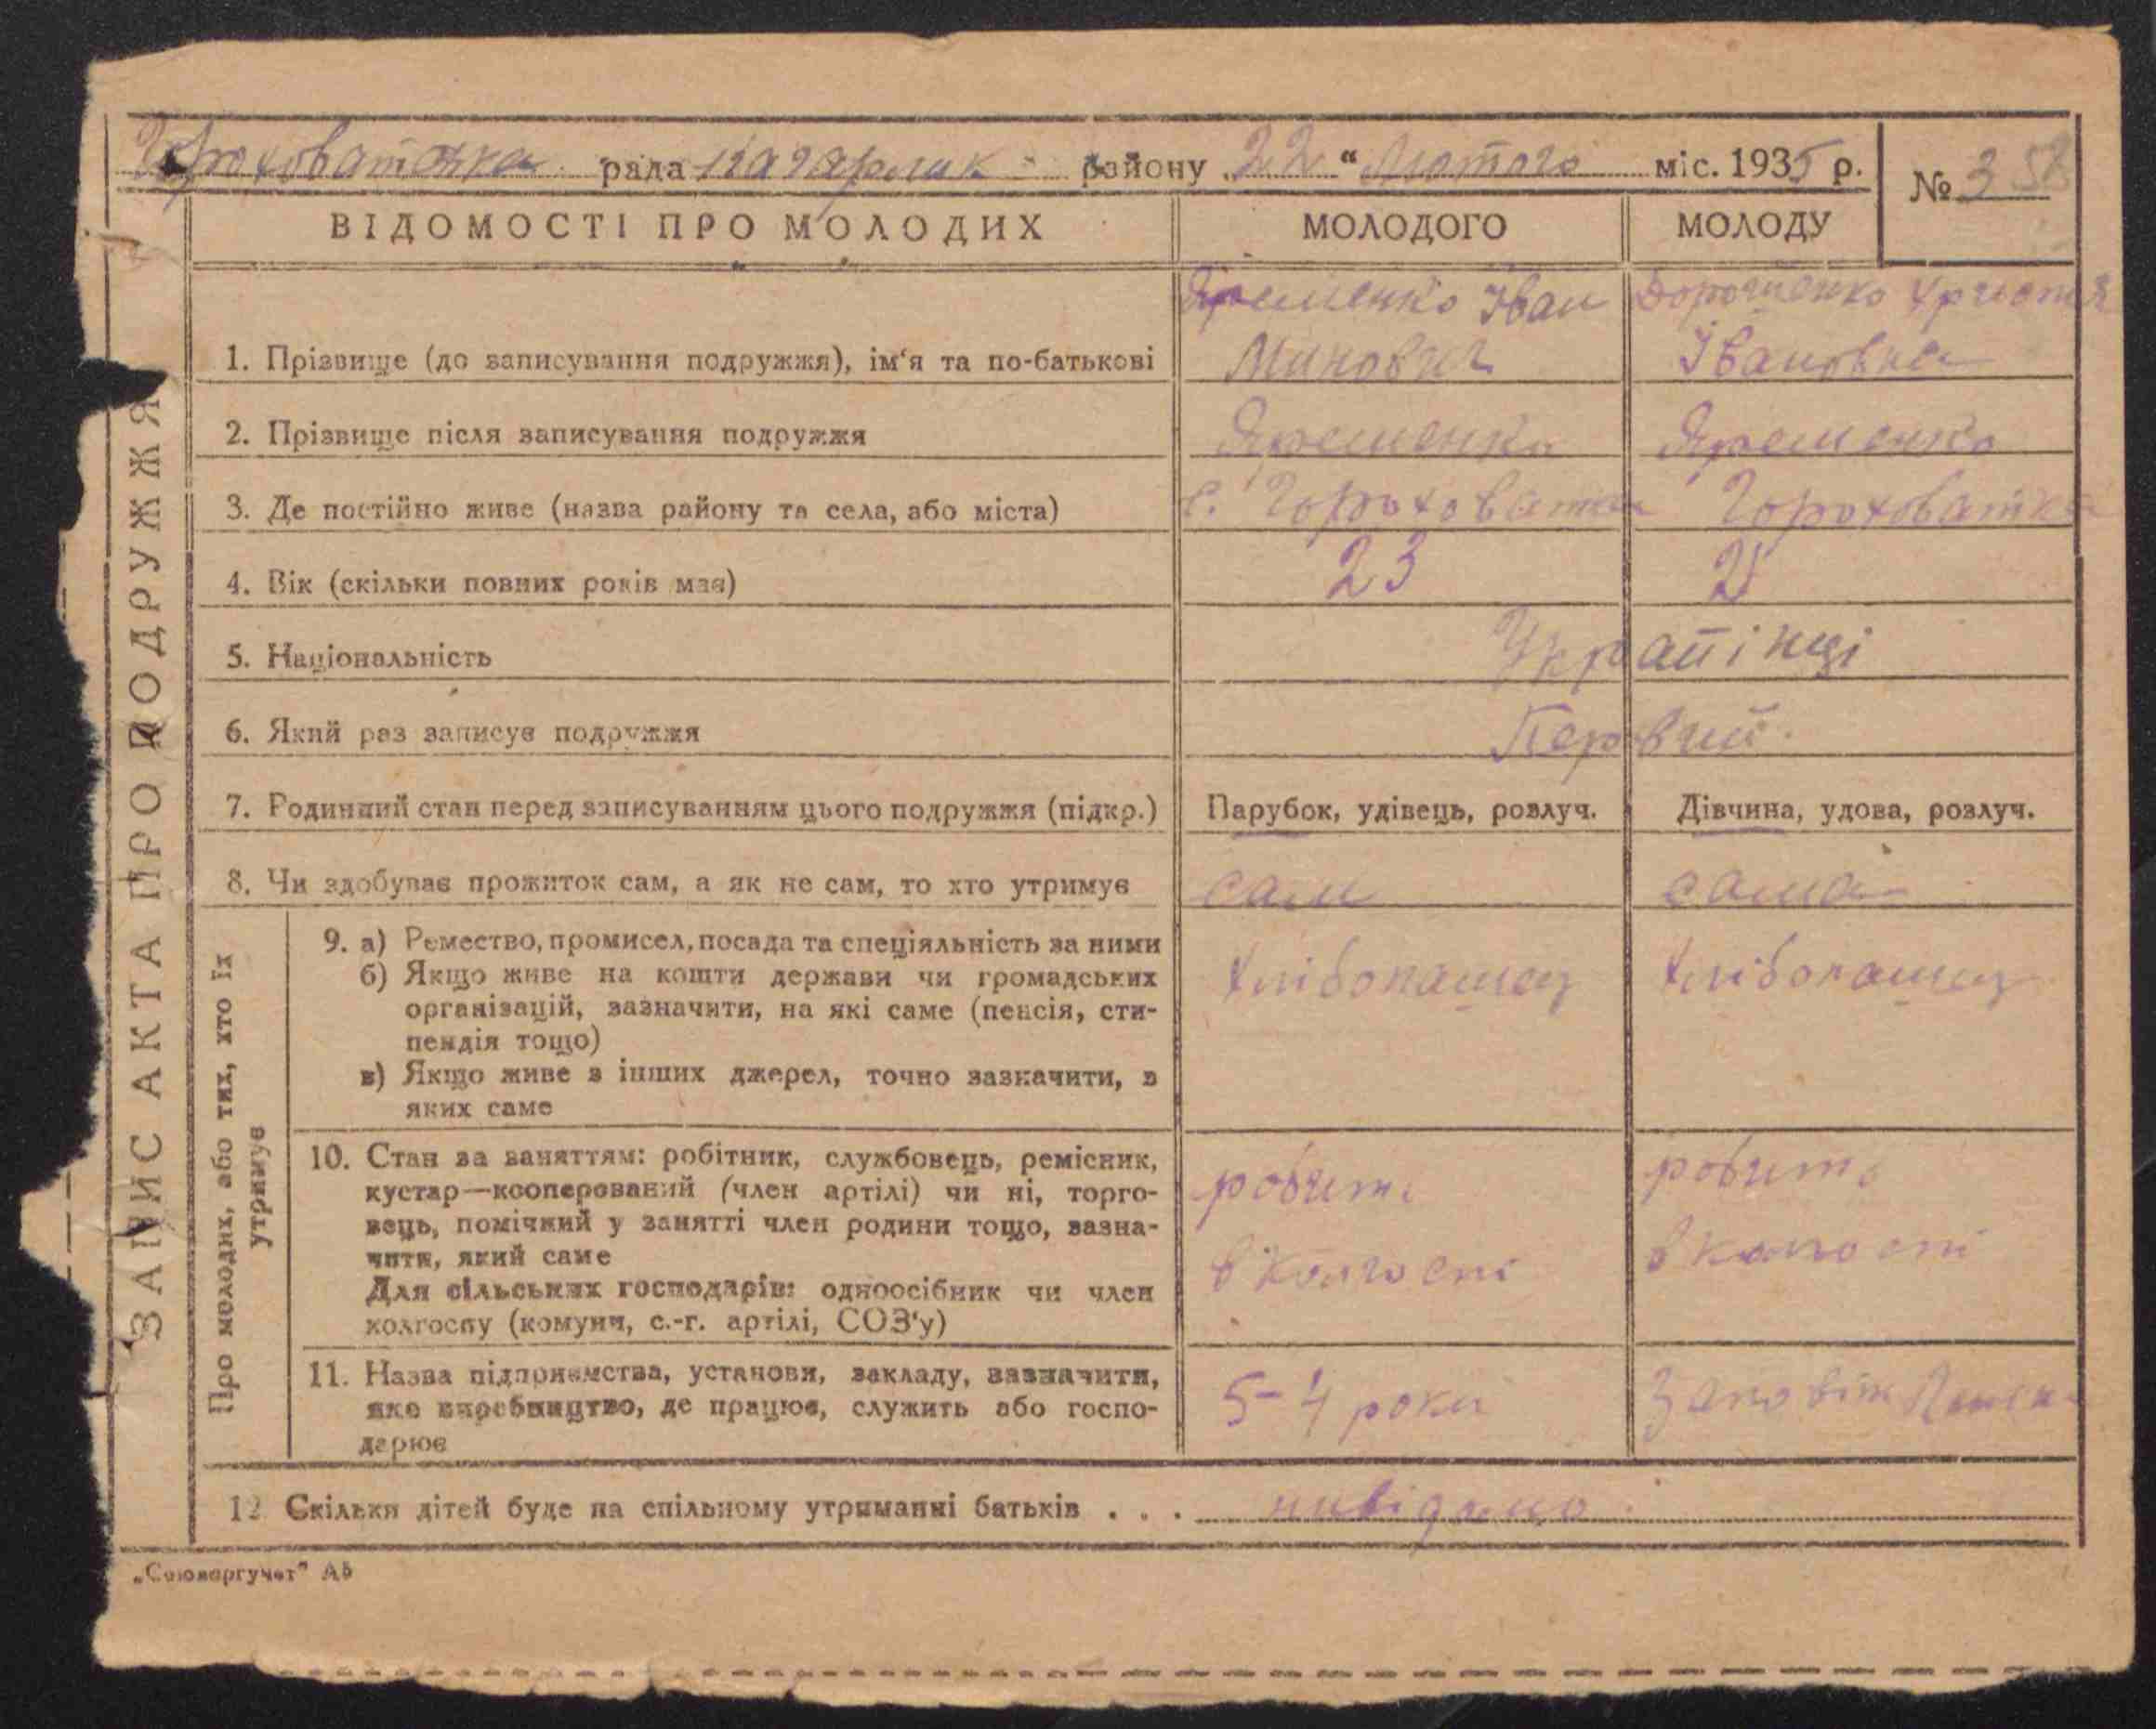 Гороховатська рада Кагарлик району „22“ Лютого міс. 1935 р. № 3 58
ВІДОМОСТІ ПРО МОЛОДИХ МОЛОДОГО МОЛОДУ
ЗАПИС АКТА ПРО ПОДРУЖЖЯ
Яременко Іван Дорошенко Христя
1. Прізвище (до записування подружжя), ім‘я та по-батькові Минович Івановна
2. Прізвище після записування подружжя Яременко Яременко
3. Де постійно живе (назва району та села, або міста) с. Гороховатка Гороховатка
4. Вік (скільки повних років має) 23
5. Національність Українці
6. Який раз записує подружжя Первий.
7. Родинний стан перед записуванням цього подружжя (підкр.) Парубок, удівець, розлуч. Дівчина, удова, розлуч.
8. Чи здобуває прожиток сам, а як не сам, то хто утримує сам сама
Про молодих, або тих, хто їх
утримує
9. а) Ремество, промисел, посада та спеціяльність за ними хлібопашец хлібопашец
б) Якщо живе на кошти держави чи громадських
організацій, зазначити, на які саме (пенсія, сти-
пендія тощо)
в) Якщо живе з інших джерел, точно зазначити, з
яких саме
10. Стан за заняттям: робітник, службовець, ремісник, робить робить
кустар—кооперований (член артілі) чи ні, торго-
вець, помічний у занятті член родини тощо, зазна-
чити, який саме в колгоспі в колгоспі
Для сільських господарів: одноосібник чи член
колгоспу (комуни, с.-г. артілі, СОЗ‘у)
11. Назва підприємства, установи, закладу, зазначити, 5-4 роки Заповіт
яке виробництво, де працює, служить або госпо-
дарює
12 Скільки дітей буде на спільному утриманні батьків . . . нивідомо
„Союзоргучет” А5